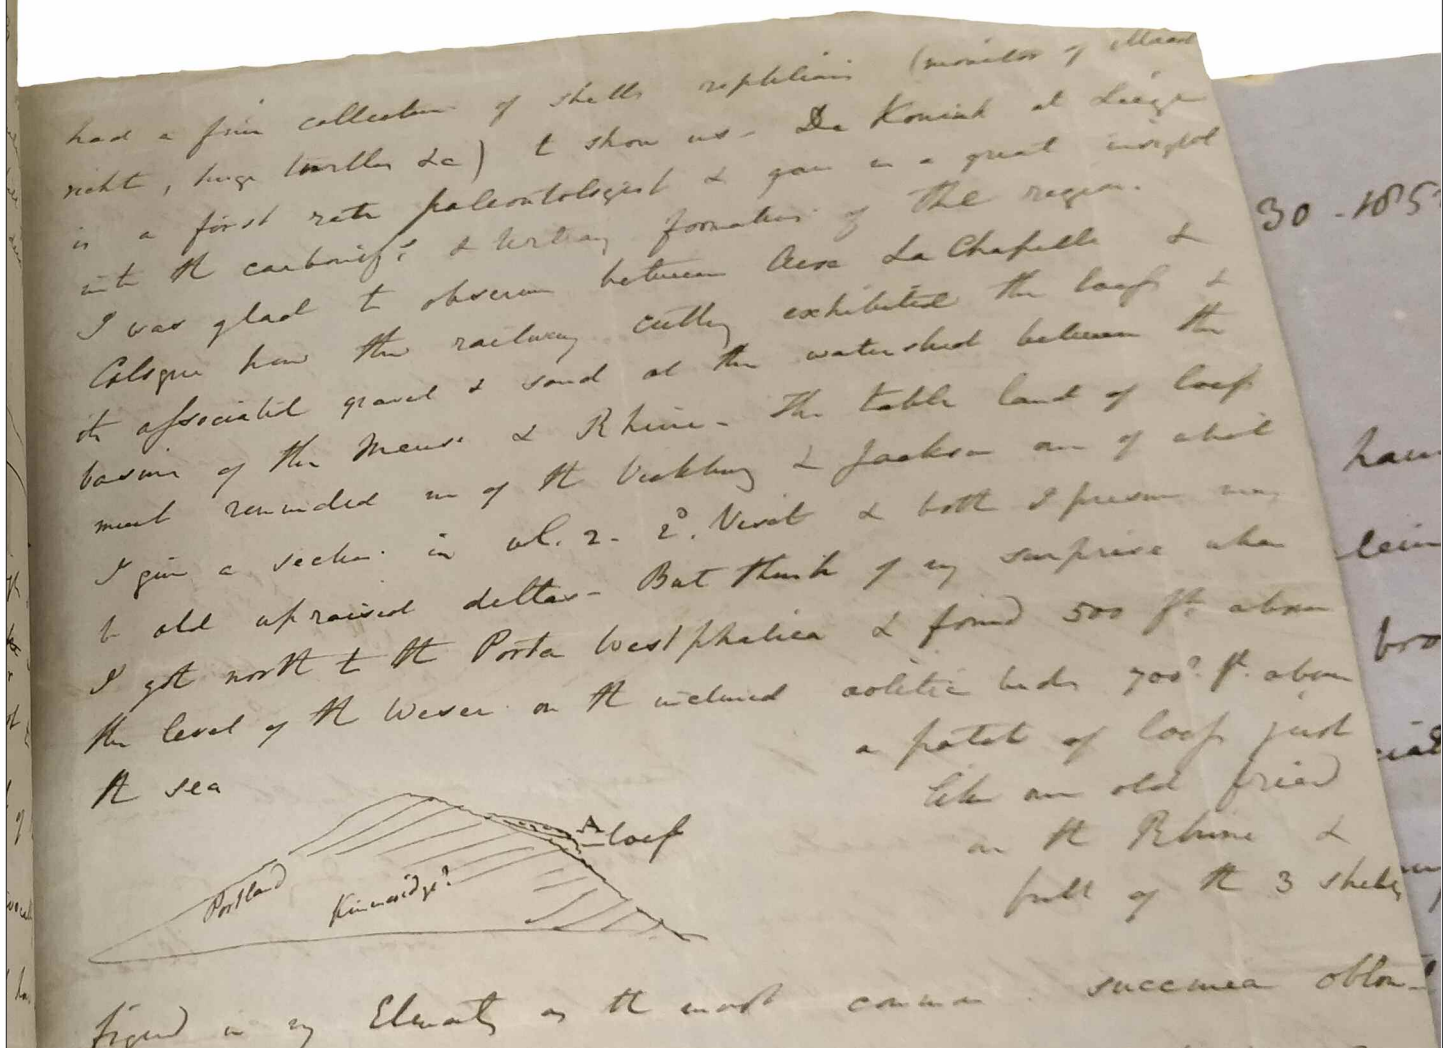 had a fine collection of shells reptilian (monitor of Maast
richt, huge turtles &c) to show us - De Konink at Liége
is a first rate paleontologist & gave us a great insight
into the carbonifs. & tertiary formations of the region.
I was glad to observe between Aix La Chapelle &
Cologne how the railway cutting exhibited the loess &
its associated gravel & sand at the watershed between the
basins of the Meuse & Rhine - The table land of loess
most reminded me of the Vicksburg & Jackson one of which
I give a section in vol. 2. 2d. Visit & both I presume may
be old upraised deltas - But think of my surprise when
I got north to the Porta Westphalica & found 500 ft. above
the level of the Weser on the inclined oolitic beds 700? ft. above
the sea
a patch of loess just
like an old friend
on the Rhine &
full of the 3 shells
A
loess
Portland
Kimmeridge?
figured in my Elements as the most common. succinea oblon-
30 - 185
have
bro